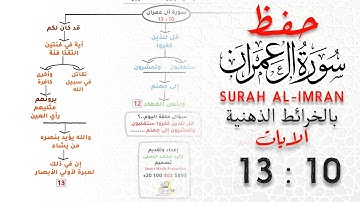 حفظ
سورة آل عمران
SURAH AL-IMRAN
بالخرائط الذهنية
الايات
13 : 10
سورة آل عمران
13 : 10
قل للذين
كفروا
ستغلبون
وتحشرون
إلى جهنم
وبئس المهاد 12
قد كان لكم
آية في فئتين
التقتا فئة
تقاتل
في سبيل
الله
وأخرى
كافرة
يرونهم
مثليهم
رأي العين
والله يؤيد بنصره
من يشاء
إن في ذلك
لعبرة لأولي الأبصار
13
سؤال حلقة اليوم..؟
قل للذين كفروا ستغلبون
وتحشرون إلى جهنم ......
إعداد وتقديم
تصميم
+20 100 403 5893